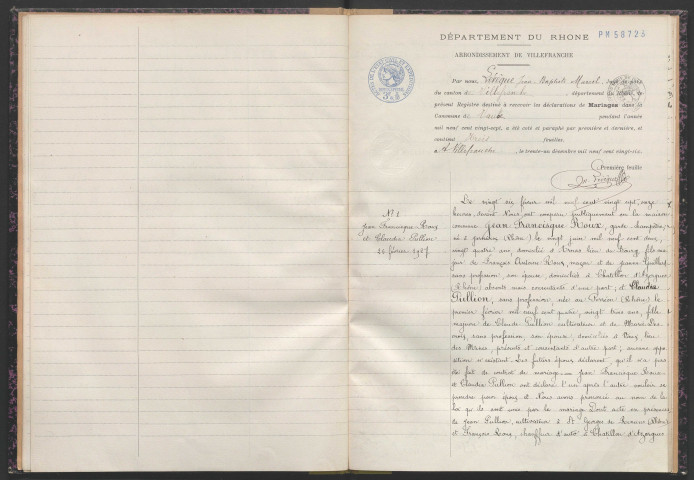 DÉPARTEMENT DU RHONE PM 58725
ARRONDISSEMENT DE VILLEFRANCHE
Par nous, Jean Baptiste Marcel, juge de paix
du canton de Villefranche, département du Rhône, le
présent Registre destiné à recevoir les déclarations de Mariages dans la
Commune de pendant l'année
mil neuf cent vingt-sept, a été coté et paraphé par première et dernière, et
contient trois feuilles.
A Villefranche, le trente-un décembre mil neuf cent vingt-six
Première feuille
N° 1
Jean Francisque Roux
et Claudia Pullion
26 février 1927
Le vingt six février mil neuf cent vingt sept, onze
heures, devant Nous ont comparu publiquement en la maison
commune Jean Francisque Roux, garde champêtre,
né à (Rhône) le vingt juin mil neuf cent deux,
vingt quatre ans, domicilié à Arnas lieu de fils ma-
jeur de François Antoine Roux, maçon et de Jeanne
sans profession, son épouse, domiciliés à Chatillon d'Azergues
(Rhône) absents mais consentants d'une part; et Claudia
Pullion, sans profession, née au Perréon (Rhône) le
premier février mil neuf cent quatre, vingt trois ans, fille
majeure de Claude Pullion cultivateur et de Marie
sans profession, son épouse, domiciliés à lieu
des présents et consentants d'autre part; aucune oppo-
sition n'existant. Les futurs époux déclarent qu'il n'a pas
été fait de contrat de mariage. Jean Francisque Roux
et Claudia Pullion ont déclaré l'un après l'autre vouloir se
prendre pour époux et Nous avons prononcé au nom de la
loi qu'ils sont unis par le mariage. Dont acte en présence
de Jean Pullion, cultivateur à St Georges de Reneins (Rhône)
et François Roux, chauffeur d'auto à Chatillon d'Azergues